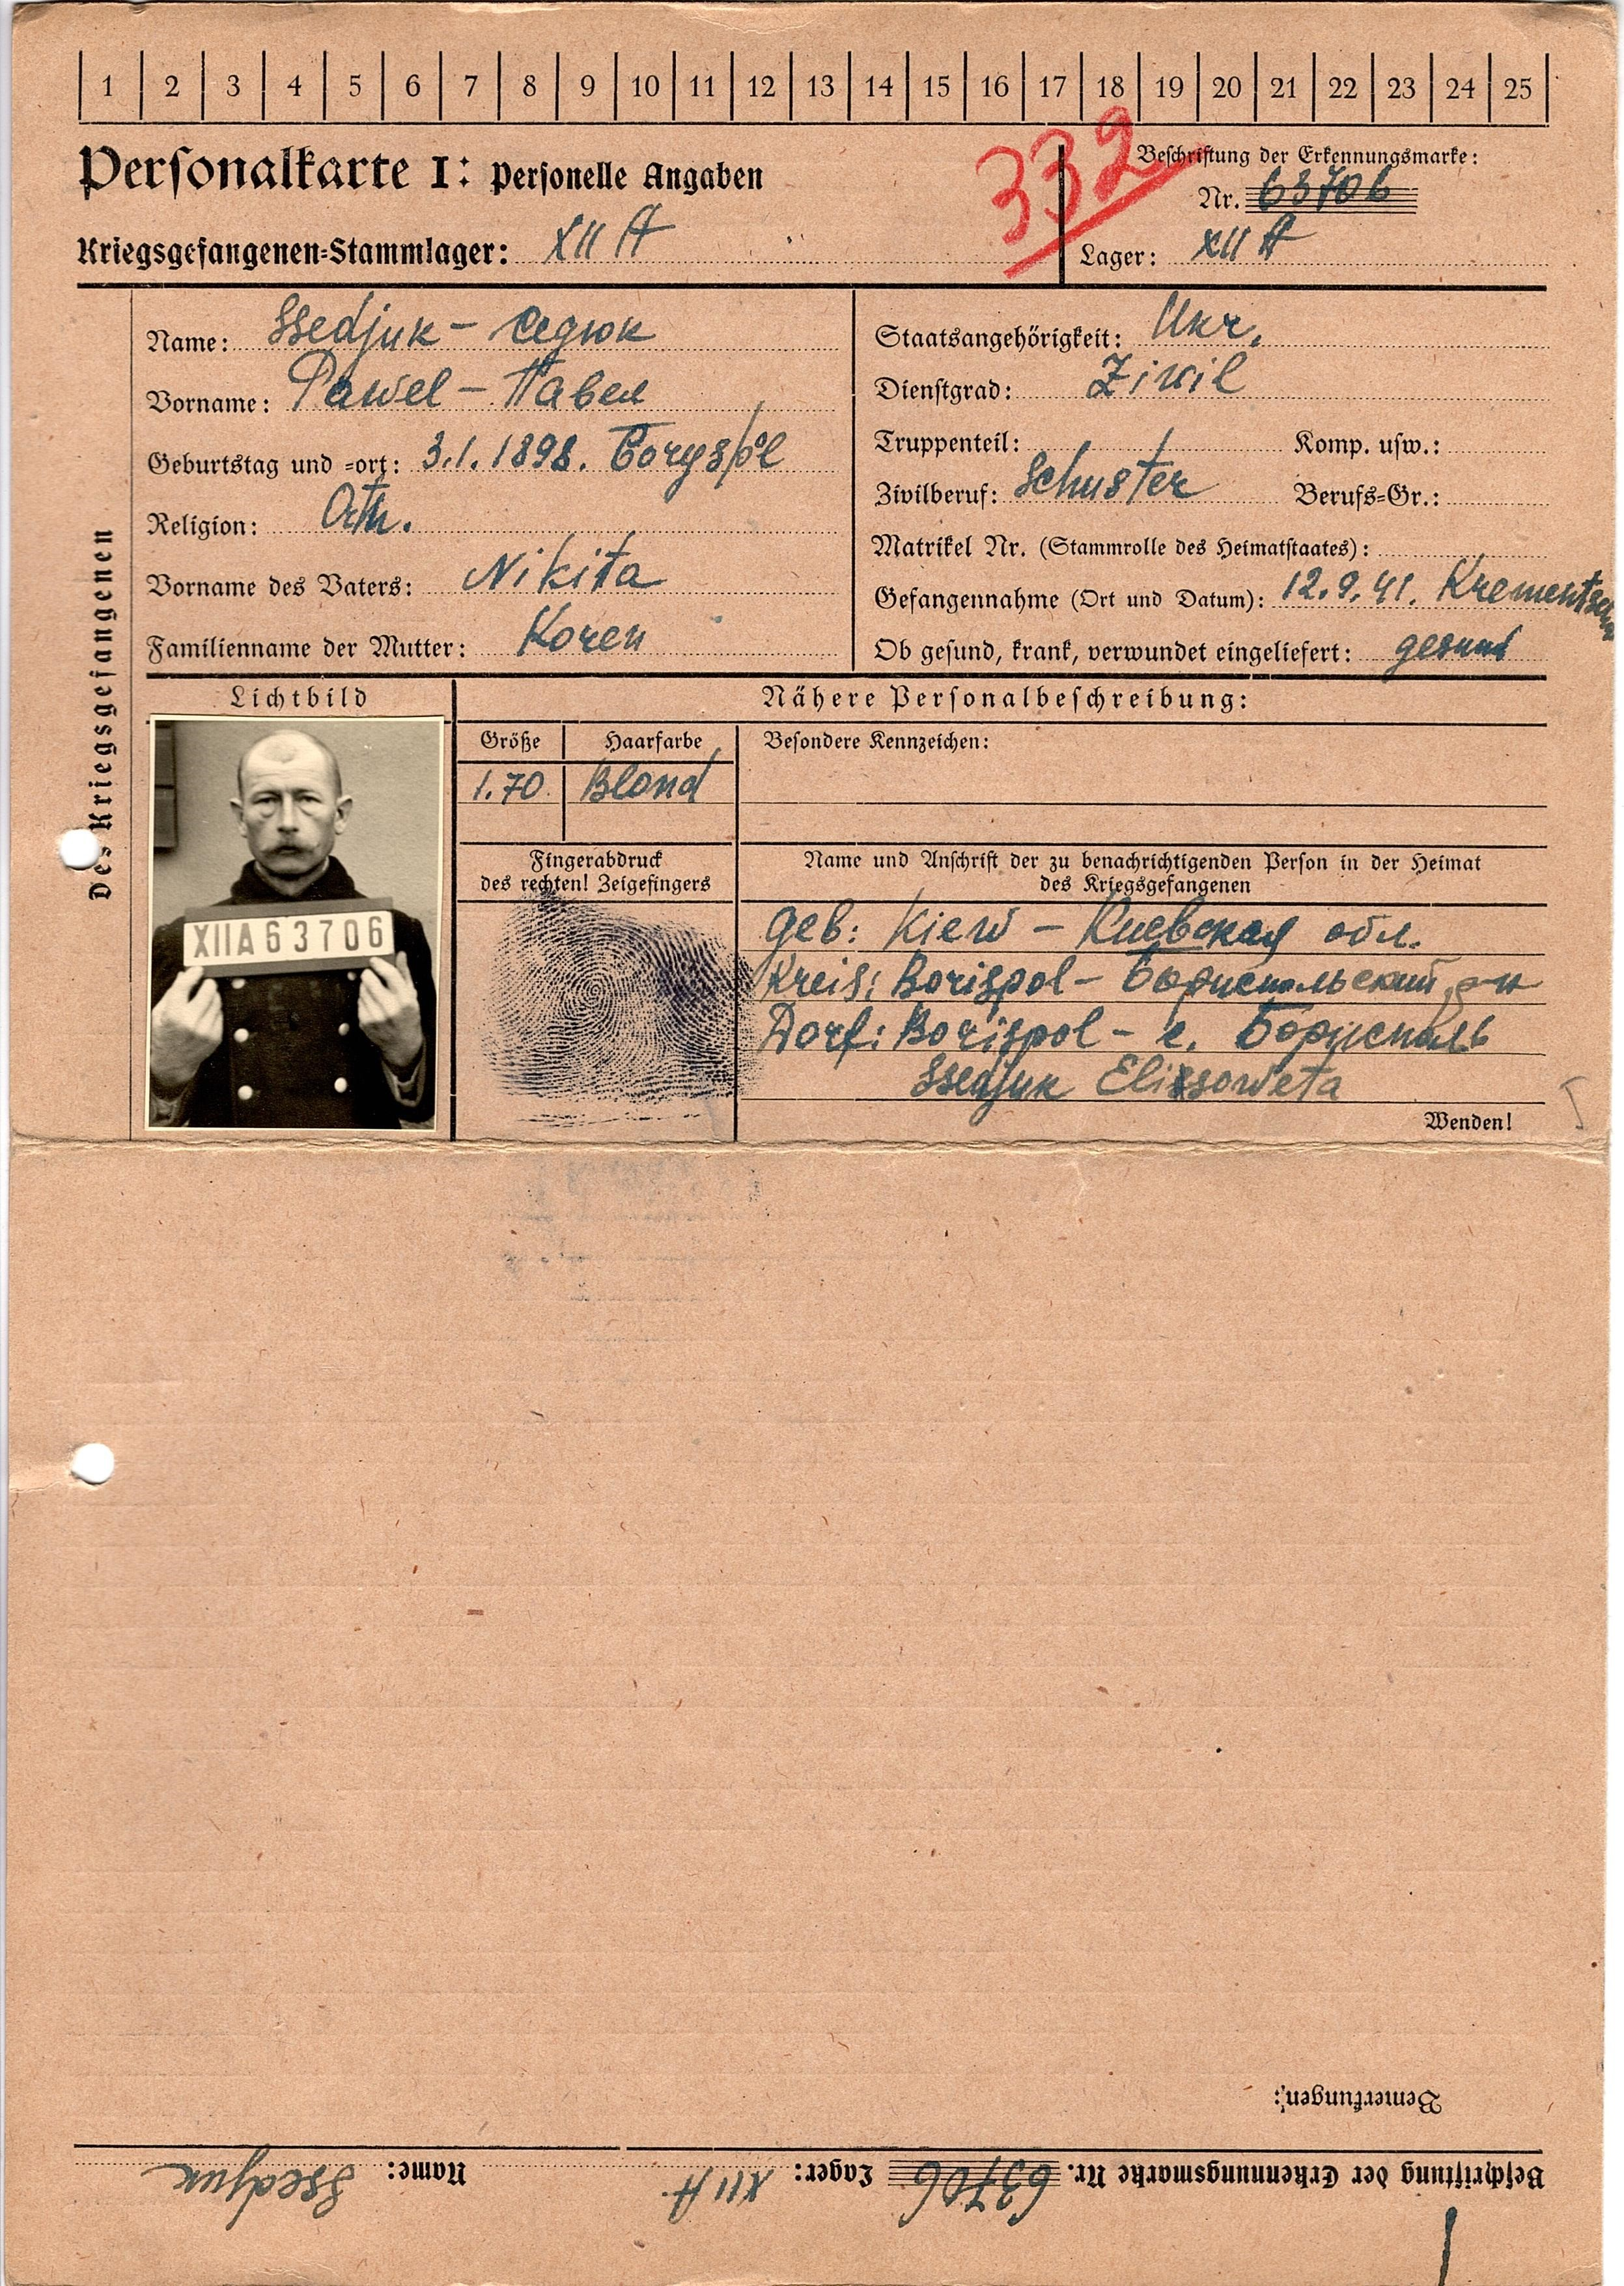 1 2 3 4 5 6 7 8 9 10 11 12 13 14 15 16 17 18 19 20 21 22 23 24 25
332
Personalkarte I: Personelle Angaben
Beschriftung der Erkennungsmarke:
Nr. 63706
Kriegsgefangenen-Stammlager: XII A
Lager: XII A
Des Kriegsgefangenen
Name: Ssedjuk - Седюк
Vorname: Pawel - Павел
Geburtstag und -ort: 3.1.1898. Boryspol
Religion: Orth.
Vorname des Vaters: Nikita
Familienname der Mutter: Koren
Staatsangehörigkeit: Ukr.
Dienstgrad: Zivil
Truppenteil: Komp. usw.:
Zivilberuf: Schuster Berufs-Gr.:
Matrikel Nr. (Stammrolle des Heimatstaates):
Gefangennahme (Ort und Datum): 12.9.41. Krementschug
Ob gesund, krank, verwundet eingeliefert: gesund
Lichtbild
XIIA 63706
Nähere Personalbeschreibung:
Größe Haarfarbe Besondere Kennzeichen:
1.70 Blond
Fingerabdruck
des rechten! Zeigefingers
Name und Anschrift der zu benachrichtigenden Person in der Heimat
des Kriegsgefangenen
Geb: Kiew - Киевская обл.
Kreis: Borispol - Бориспольский р-н
Dorf: Borispol - с. Борисполь
Ssedjuk Elissoweta
Wenden!
Bemerkungen:
Beschriftung der Erkennungsmarke Nr. 63706 Lager: XII A Name: Ssedjuk